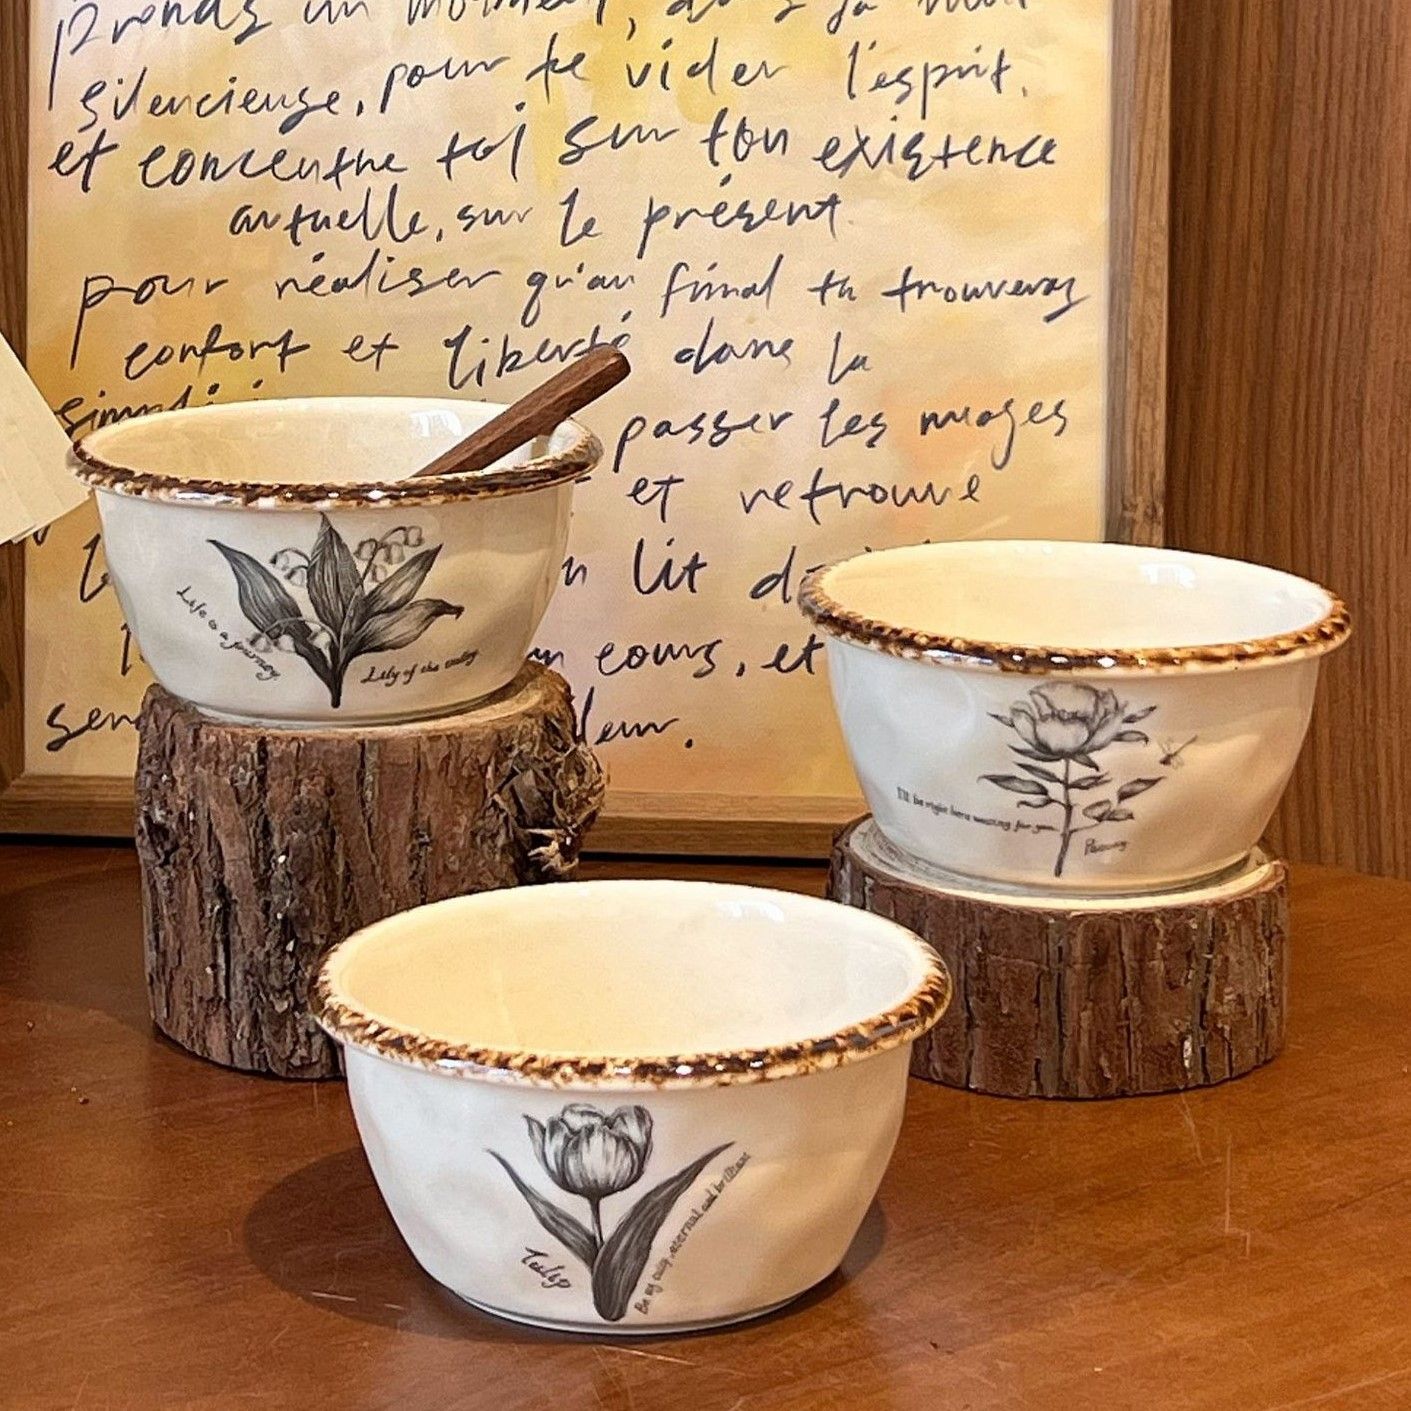 Prends un moment, dans ta nuit
silencieuse, pour te vider l'esprit.
et concentre toi sur ton existence
actuelle, sur le présent.
pour réaliser qu'au final tu trouveras
confort et liberté dans la
passer les nuages
et retrouve
lit
cours, et
Life is a journey
Lily of the valley
I'll be right here waiting for you
Tulip
eternal and brilliant